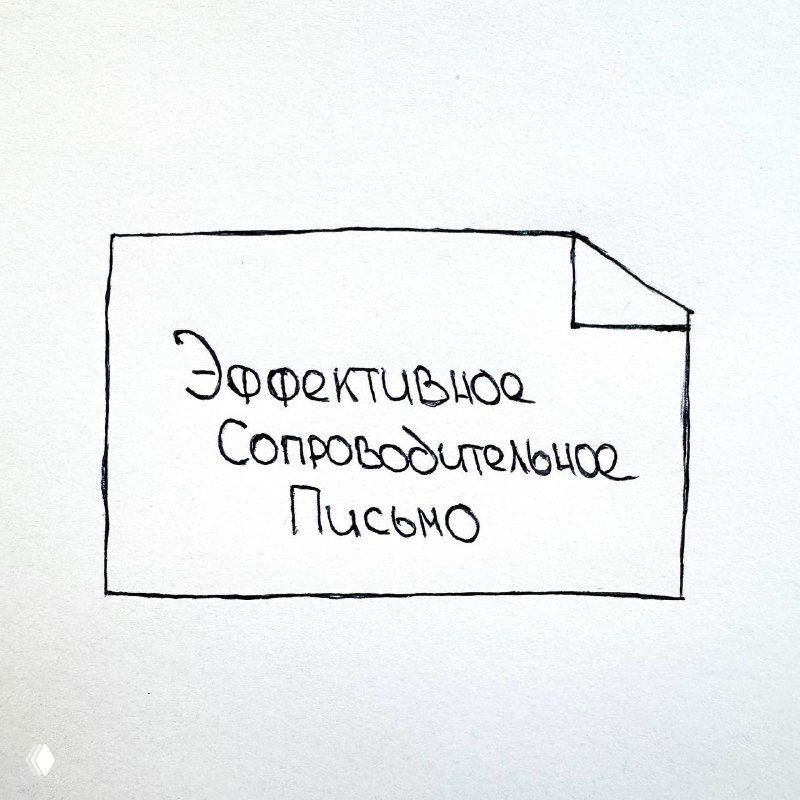 Эффективное
Сопроводительное
Письмо